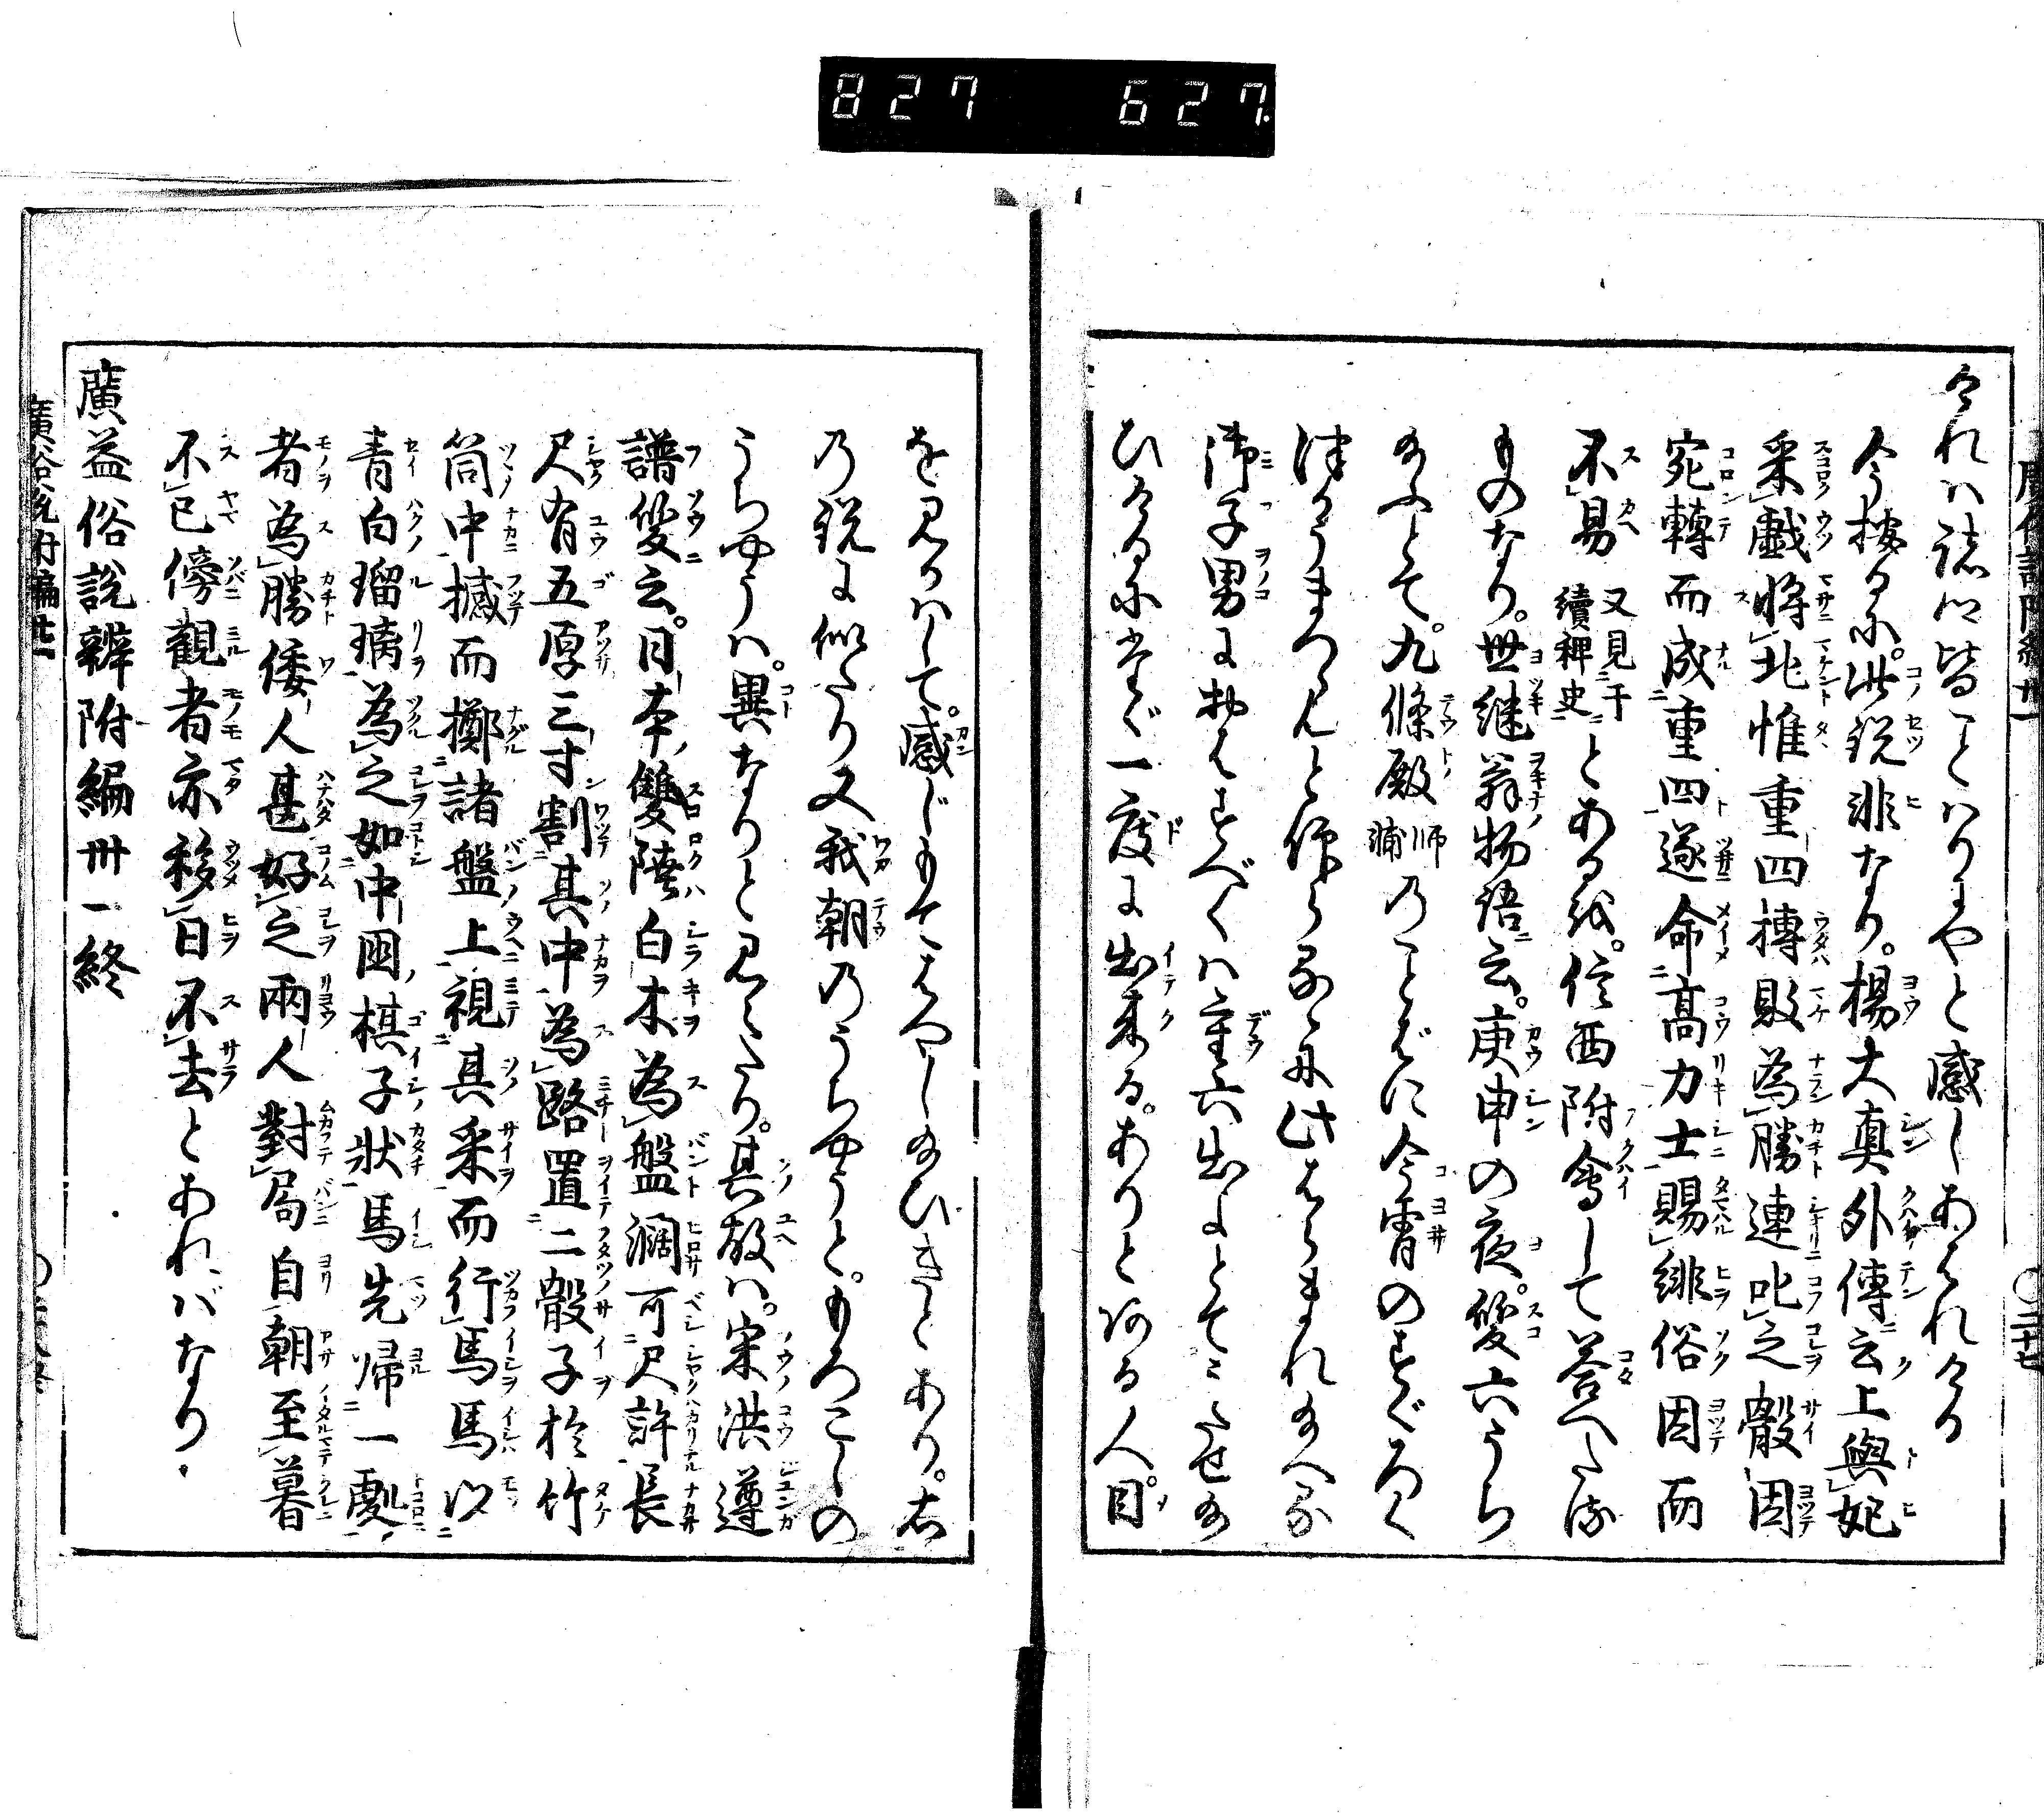 827 627
けれハ諸卿皆ことハりまやと感しあはれける
今按るに。此説非なり。楊大真外傳云上與妃
采戯將北惟重四摶敗為勝連叱之骰因
宛轉而成重四遂命高力士賜緋俗因而
不易 又見于續稗史 とある故。信西附會して答へたる
ものなり。世継翁物語云。庚申の夜。雙六うち
給ふとて。九條殿 師浦 のことばに今宵のすぐろく
つかうまつらんと仰らるゝに此はらまれ給へる
御子男におはすべくハ重六出よとてうたせ給
ひけるにたゞ一度に出来る。ありとある人。目
を見かハして。感じもてはやし給ひきとあり。右
乃説に似たり又我朝乃うちやうと。もろこしの
うちやうハ。異なりと見えたり。其故ハ。宋洪遵
譜雙云。日本雙陸白木為盤濶可尺許長
尺有五厚三寸割其中為路置二骰子於竹
筒中撼而擲諸盤上視其采而行馬馬以
青白瑠璃為之如中國棋子狀馬先帰一處
者為勝倭人甚好之兩人對局自朝至暮
不已傍觀者亦移日不去とあれバなり
廣益俗説辨附編卅一終